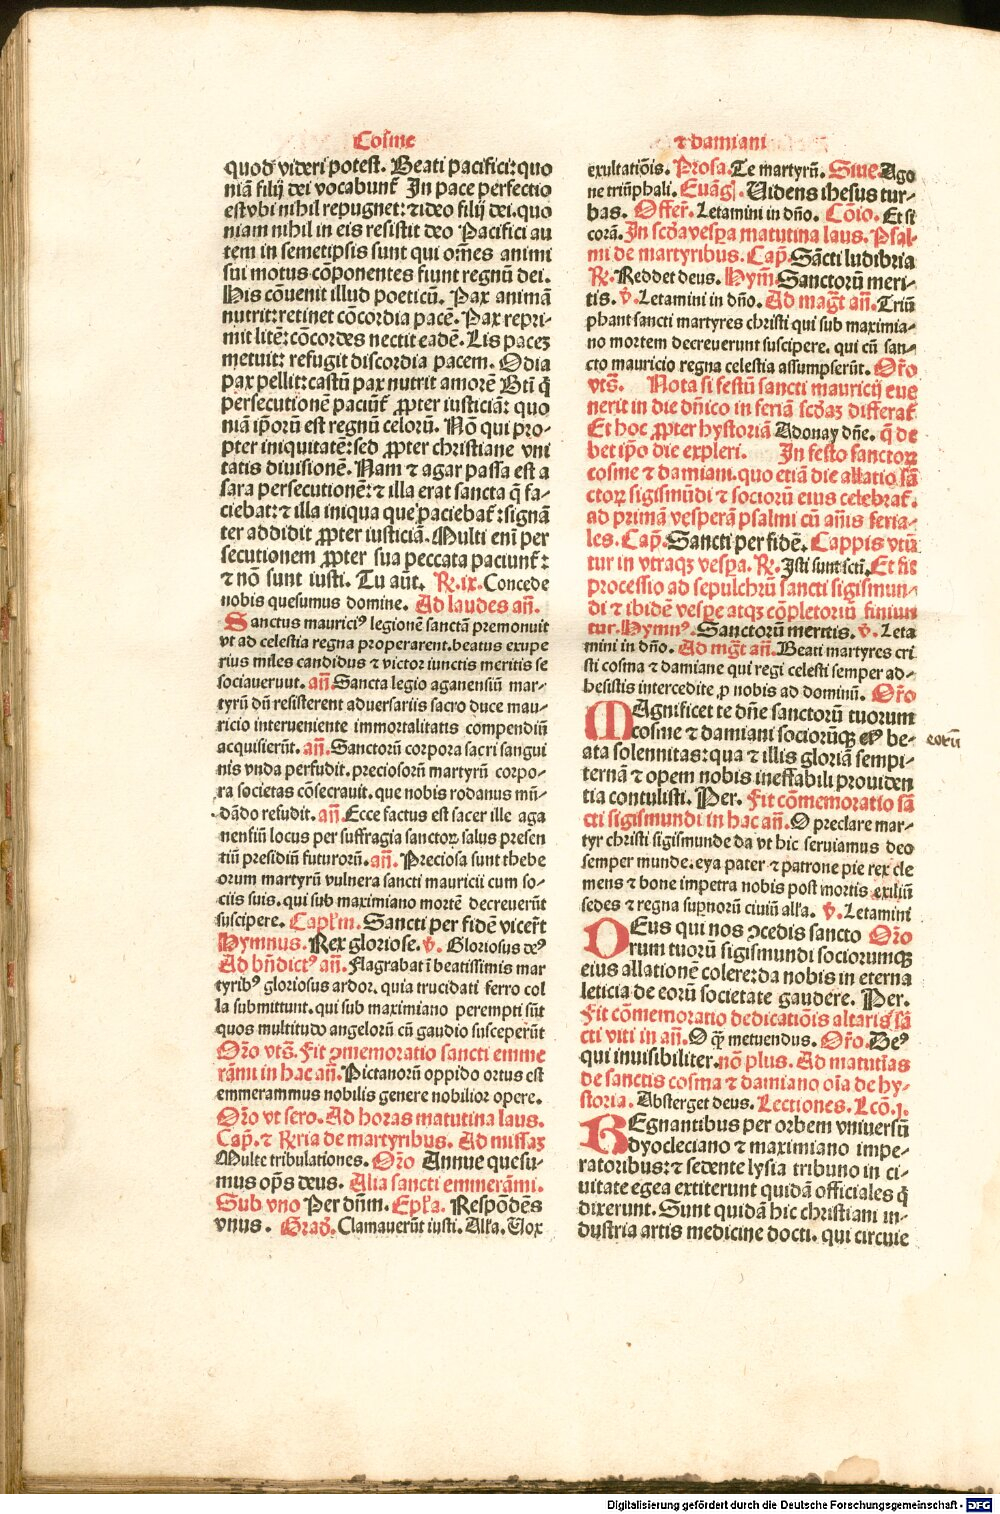 Cosme
quod videri potest. Beati pacifici: quo
niā filij dei vocabunt᷑ In pace perfectio
est vbi nihil repugnet: ⁊ ideo filij dei. quo
niam nihil in eis resistit deo Pacifici au
tem in semetipsis sunt qui om̄es animi
sui motus cōponentes fiunt regnū dei.
His cōuenit illud poeticū. Pax animā
nutrit: retinet cōcordia pacē. Pax repri-
mit litē: cōcordes nectit eadē. Lis paceꝫ
metuit: refugit discordia pacem. Odia
pax pellit: castū pax nutrit amorē Bt̄i q̄
persecutionē paciunt᷑ ꝓpter iusticiā: quo
niā ip̄orū est regnū celorū. Nō qui pro-
pter iniquitatē: sed ꝓpter christiane vni
tatis diuisionē. Nam ⁊ agar passa est a
sara persecutionē: ⁊ illa erat sancta q̄ fa-
ciebat: ⁊ illa iniqua que paciebat᷑: signā
ter addidit ꝓpter iusticiā. Multi eni per
secutionem ꝓpter sua peccata paciunt᷑:
⁊ nō sunt iusti. Tu aūt. R. ix. Concede
nobis quesumus domine. Ad laudes an̄.
Sanctus maurici⁹ legionē sanctā premonuit
vt ad celestia regna properarent. beatus exupe
rius miles candidus ⁊ victor iunctis meritis se
sociauerunt. an̄. Sancta legio aganensiū mar-
tyrū dū resisterent aduersariis sacro duce mau-
ricio interueniente immortalitatis compendiū
acquisierūt. an̄. Sanctorū corpora sacri sangui
nis vnda perfudit. preciosorū martyrū corpo-
ra societas cōsecrauit. que nobis rodanus mū-
dādo refudit. an̄. Ecce factus est sacer ille aga
nensiū locus per suffragia sanctoꝝ salus presen
tiū presidiū futurorū. an̄. Preciosa sunt thebe
orum martyrū vulnera sancti mauricii cum so-
ciis suis. qui sub maximiano mortē decreuerūt
suscipere. Capl'm. Sancti per fidē vicer̄t
Hymnus. Rex gloriose. v̄. Gloriosus de⁹
Ad bn̄dict⁹ an̄. Flagrabat ī beatissimis mar
tyrib⁹ gloriosus ardor. quia trucidati ferro col
la submittunt. qui sub maximiano perempti sūt
quos multitudo angelorū cū gaudio susceperūt
Or̄o vts̄. Fit ꝯmemoratio sancti emme
rāmi in hac an̄. Pictanorū oppido ortus est
emmerammus nobilis genere nobilior opere.
Or̄o vt sero. Ad horas matutina laus.
Cap̄. ⁊ R̄ria de martyribus. Ad missaꝫ
Multe tribulationes. Or̄o Annue quesu-
mus op̄s deus. Alia sancti emmerāmi.
Sub vno Per dn̄m. Epl'a. Respōdēs
vnus. Grad̄. Clamauerūt iusti. All'a. Vox
⁊ damiani
exultatiōis. Prosa. Te martyrū. Siue Ago
ne triūphali. Euāḡ. Videns ihesus tur-
bas. Offer̄. Letamini in dn̄o. Cōio. Et si
corā. In scd̄a vesꝑa matutina laus. Psal-
mi de martyribus. Cap̄. Sācti ludibria
R̄. Reddet deus. Hym̄. Sanctorū meri-
tis. v̄. Letamini in dn̄o. Ad mag̅t an̄. Triū
phant sancti martyres christi qui sub maximia-
no mortem decreuerunt suscipere. qui cū san-
cto mauricio regna celestia assumpserūt. Or̄o
vts̄. Nota si festū sancti mauricij eue
nerit in die dn̄ico in feriā scd̄aꝫ differat᷑
Et hoc ꝓpter hystoriā Adonay dn̄e. q̄ de
bet ip̄o die expleri. In festo sanctoꝝ
cosme ⁊ damiani. quo etiā die allatio sā
ctoꝝ sigismūdi ⁊ sociorū eius celebrat᷑.
ad primā vesperā psalmi cū an̄is feria-
les. Cap̄. Sancti per fidē. Cappis vtū
tur in vtraqꝫ vesꝑa. R̄. Justi sunt sctī. Et fit
processio ad sepulchrū sancti sigismun-
di ⁊ ibidē vespe atqꝫ cōpletoriū finiun
tur. Hymn⁹. Sanctorū meritis. v̄. Leta
mini in dn̄o. Ad mg̅t an̄. Beati martyres cri
sti cosma ⁊ damiane qui regi celesti semper ad-
hesistis intercedite ꝓ nobis ad dominū. Or̄o
MAgnificet te dn̄e sanctorū tuorum
cosme ⁊ damiani sociorūqꝫ ei⁹ be-
eorū
ata solennitas: qua ⁊ illis gloriā sempi-
ternā ⁊ opem nobis ineffabili prouiden
tia contulisti. Per. Fit cōmemoratio sā
cti sigismundi in hac an̄. O preclare mar-
tyr christi sigismunde da vt hic seruiamus deo
semper munde. eya pater ⁊ patrone pie rex cle
mens ⁊ bone impetra nobis post mortis exiliū
sedes ⁊ regna suꝑnorū ciuiū all'a. v̄. Letamini
DEus qui nos ꝯcedis sancto Or̄o
rum tuorū sigismundi sociorumqꝫ
eius allationē colere: da nobis in eterna
leticia de eorū societate gaudere. Per.
Fit cōmemoratio dedicatiōis altaris sā
cti viti in an̄. O q̄ metuendus. Or̄o. De⁹
qui inuisibiliter. nō plus. Ad matutīas
de sanctis cosma ⁊ damiano oīa de hy-
storia. Absterget deus. Lectiones. Lcō. j.
REgnantibus per orbem vniuersū
dyocleciano ⁊ maximiano impe-
ratoribus: ⁊ sedente lysia tribuno in ci-
uitate egea extiterunt quidā officiales q̄
dixerunt. Sunt quidā hic christiani in-
dustria artis medicine docti. qui circuie
Digitalisierung gefördert durch die Deutsche Forschungsgemeinschaft - DFG